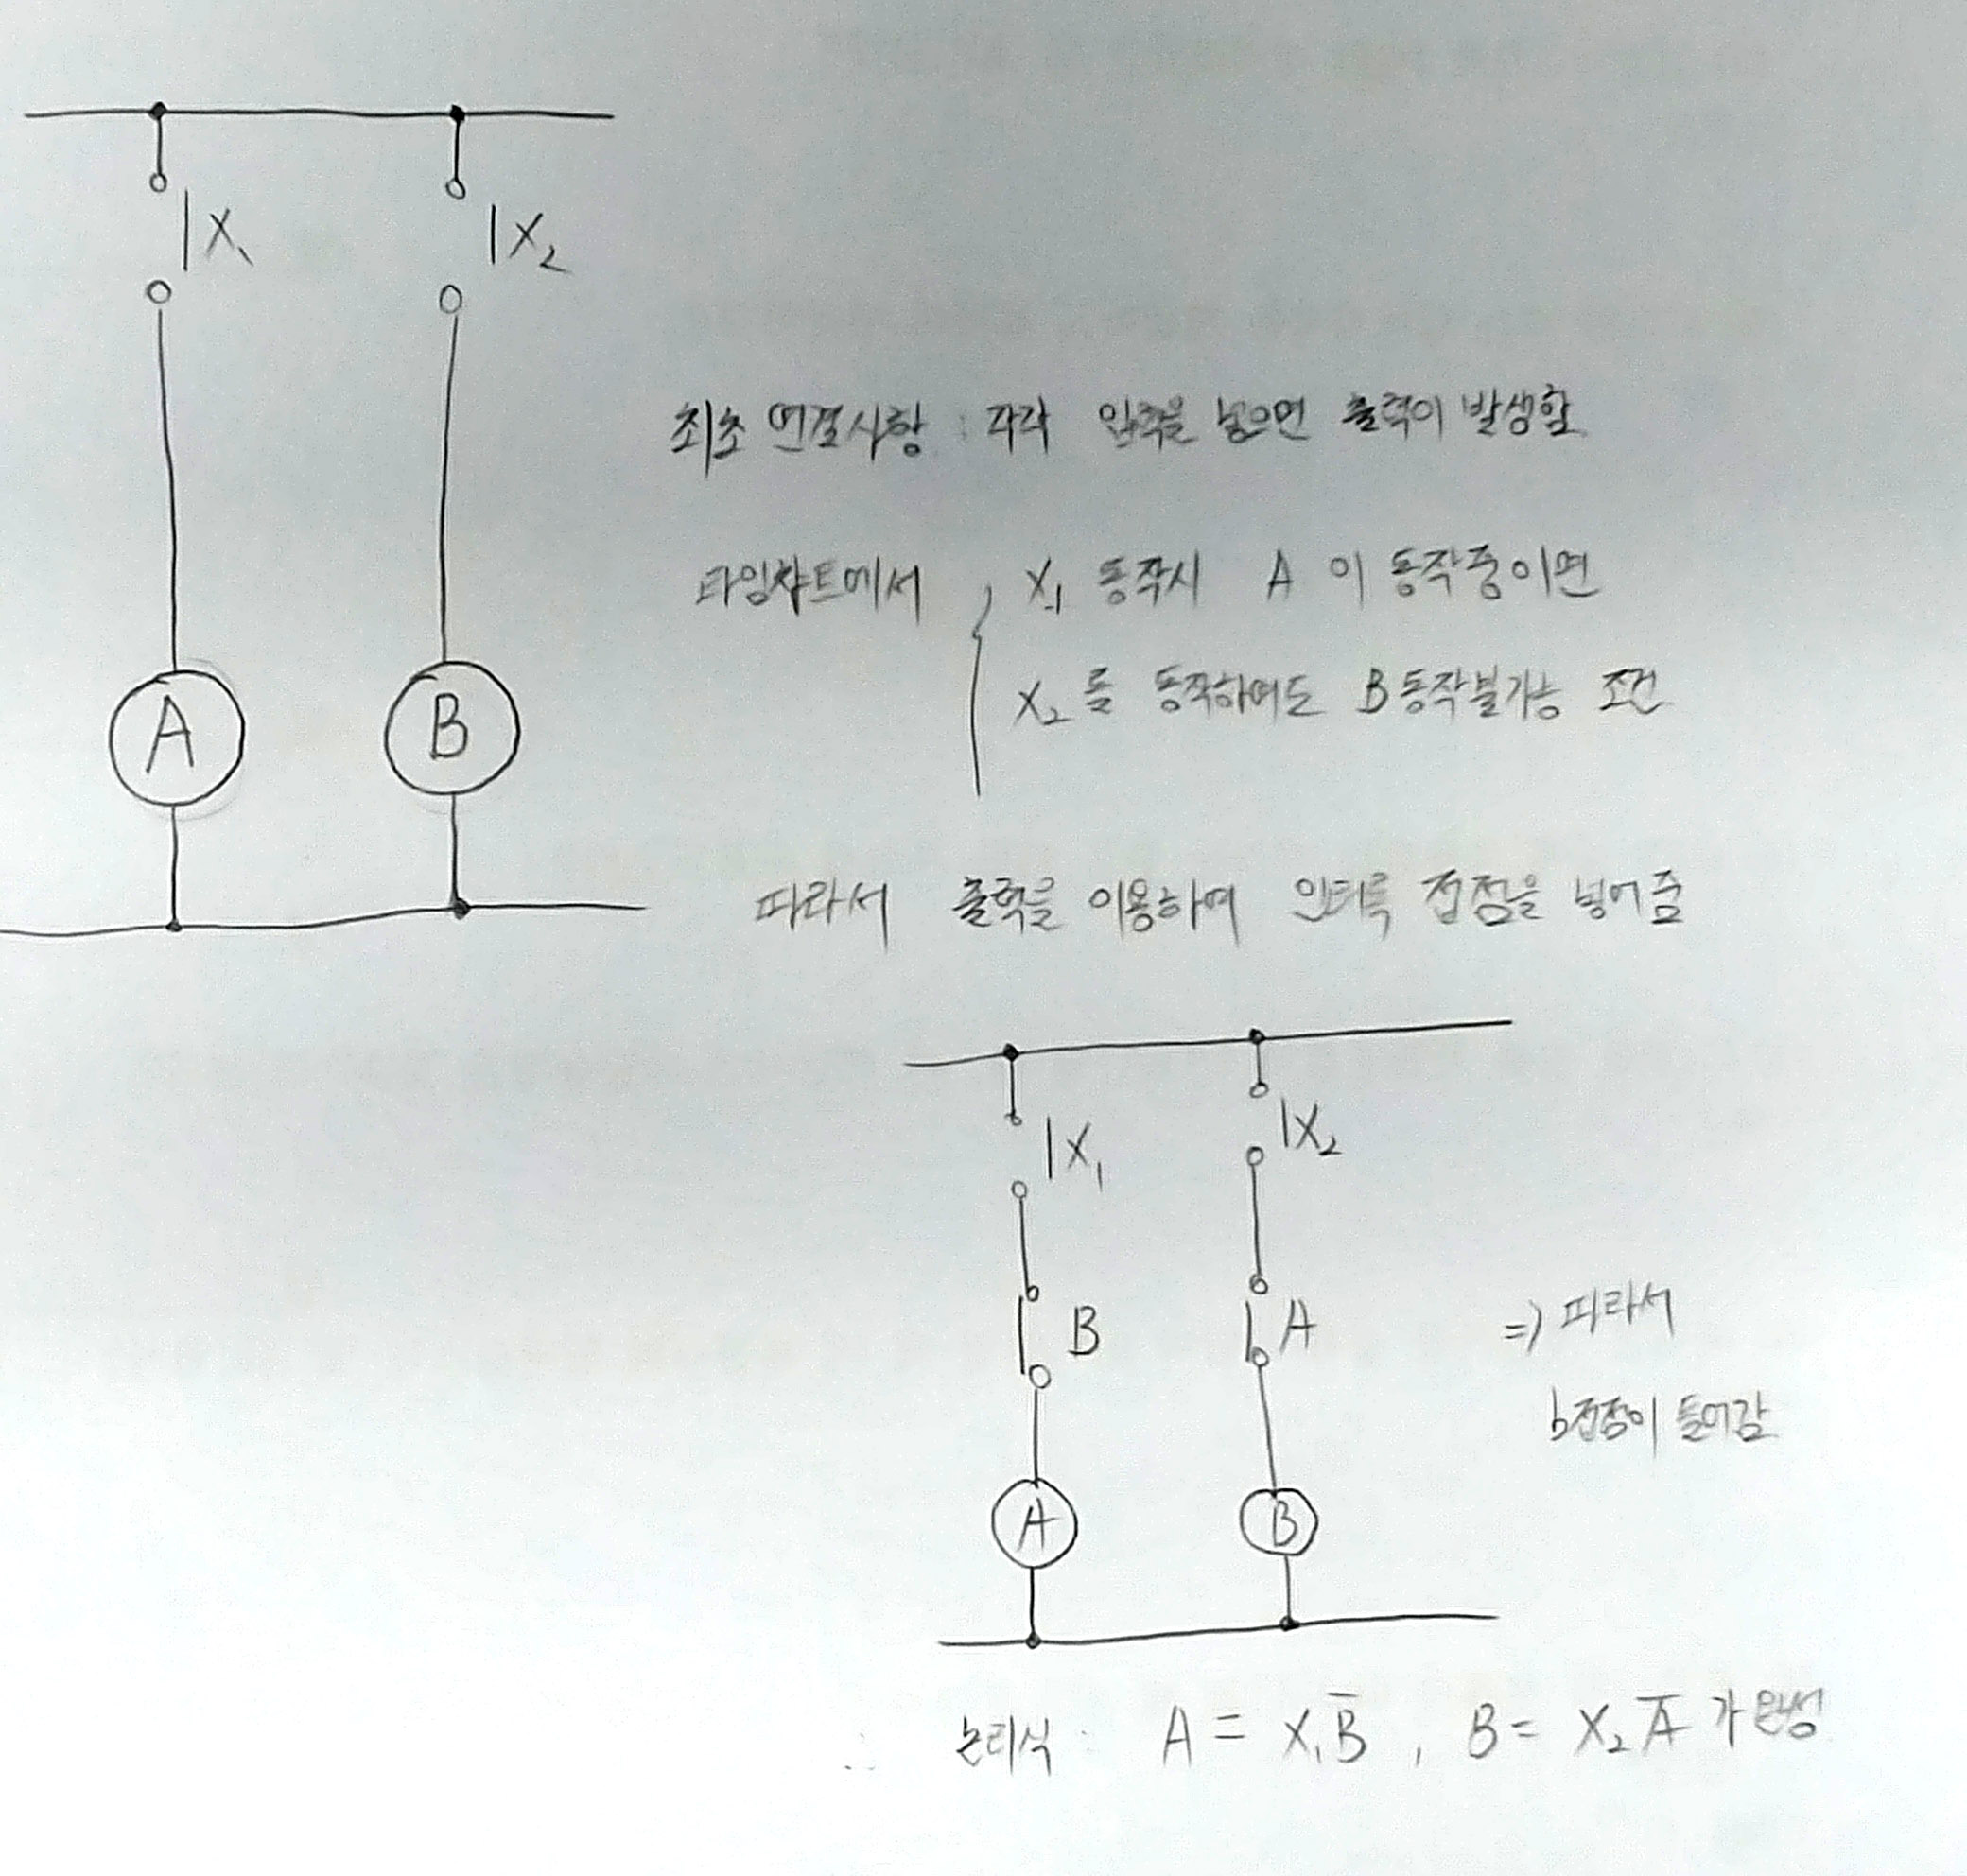 X₁
X₂
A
B
최초 연결사항 : 각각 입력을 넣으면 출력이 발생함
타임챠트에서 X₁ 동작시 A 이 동작중이면
X₂를 동작하여도 B동작불가능 조건
따라서 출력을 이용하여 인터록 접점을 넣어줌
X₁
X₂
B
A
=> 따라서
b접점이 들어감
A
B
∴ 논리식 : A = X₁B̅ , B = X₂A̅ 가 완성